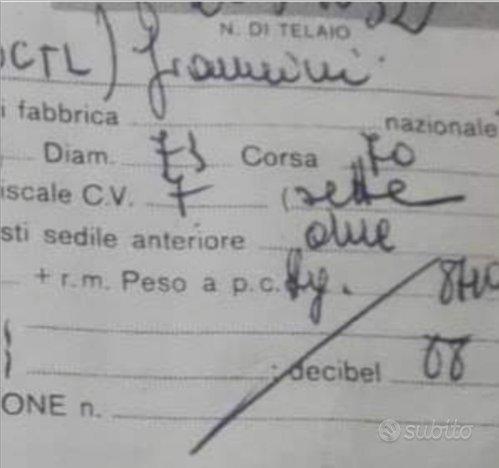 N. DI TELAIO
CTL) Giannini
i fabbrica nazionale
Diam. 73 Corsa 70
iscale C.V. 7 (sette
sti sedile anteriore due
+ r.m. Peso a p.c. kg.
decibel 88
ONE n.
subito